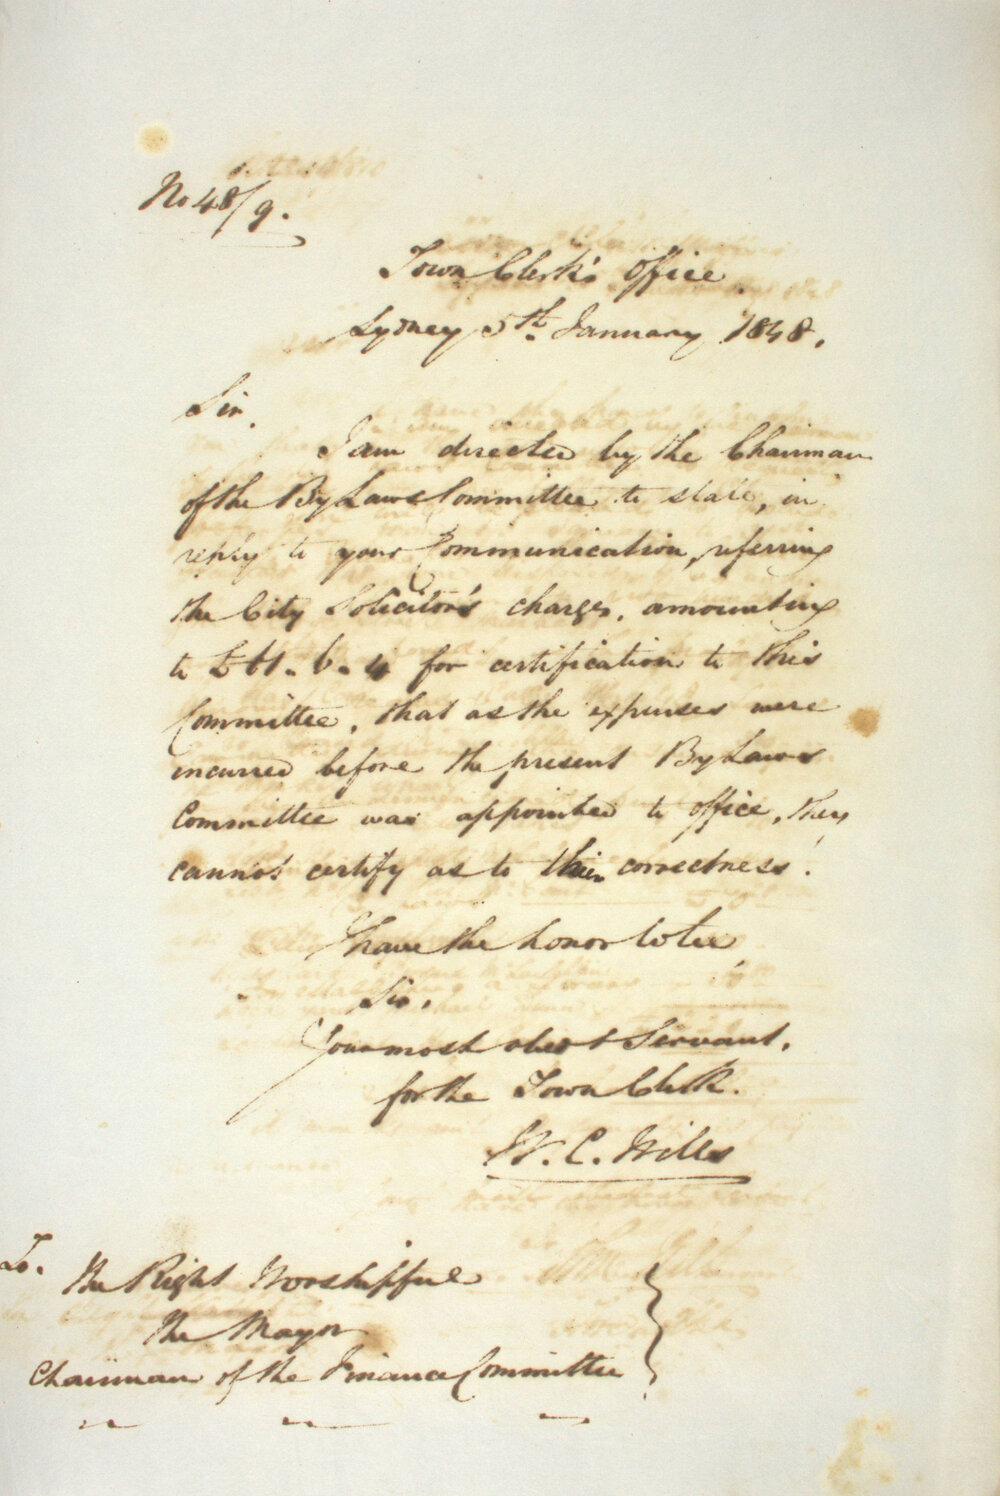 No 48/9.
Town Clerk's Office
Sydney 5th January 1848.
Sir,
I am directed by the Chairman
of the By Laws Committee to state, in
reply to your Communication, referring
the City Solicitor's charges, amounting
to £61.6.4 for certification to this
Committee, that as the expenses were
incurred before the present By Laws
Committee was appointed to office, they
cannot certify as to their correctness.
I have the honor to be,
Sir,
Your most obedt Servant,
for the Town Clerk.
W. C. Wills
To.
The Right Worshipful
The Mayor
Chairman of the Finance Committee